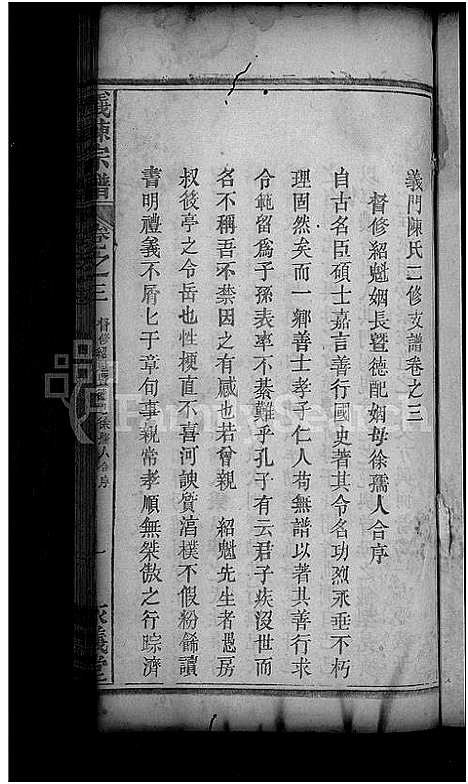 義門陳氏二修支譜卷之三
督修紹魁姻長暨德配姻母徐孺人合序
自古名臣碩士嘉言善行國史著其令名功烈永垂不朽
理固然矣而一鄉善士孝子仁人苟無譜以著其善行求
令範留爲子孫表率不綦難乎孔子有云君子疾沒世而
名不稱吾不禁因之有感也若曾親 紹魁先生者愚房
叔後亭之令岳也性梗直不喜河諛質湻樸不假粉餙讀
書明禮義不屑匕于章句事親常孝順無桀傲之行踪濟
義陳宗譜 卷之三 督修紹魁 徐孺人合序 一 義堂
FamilySearch